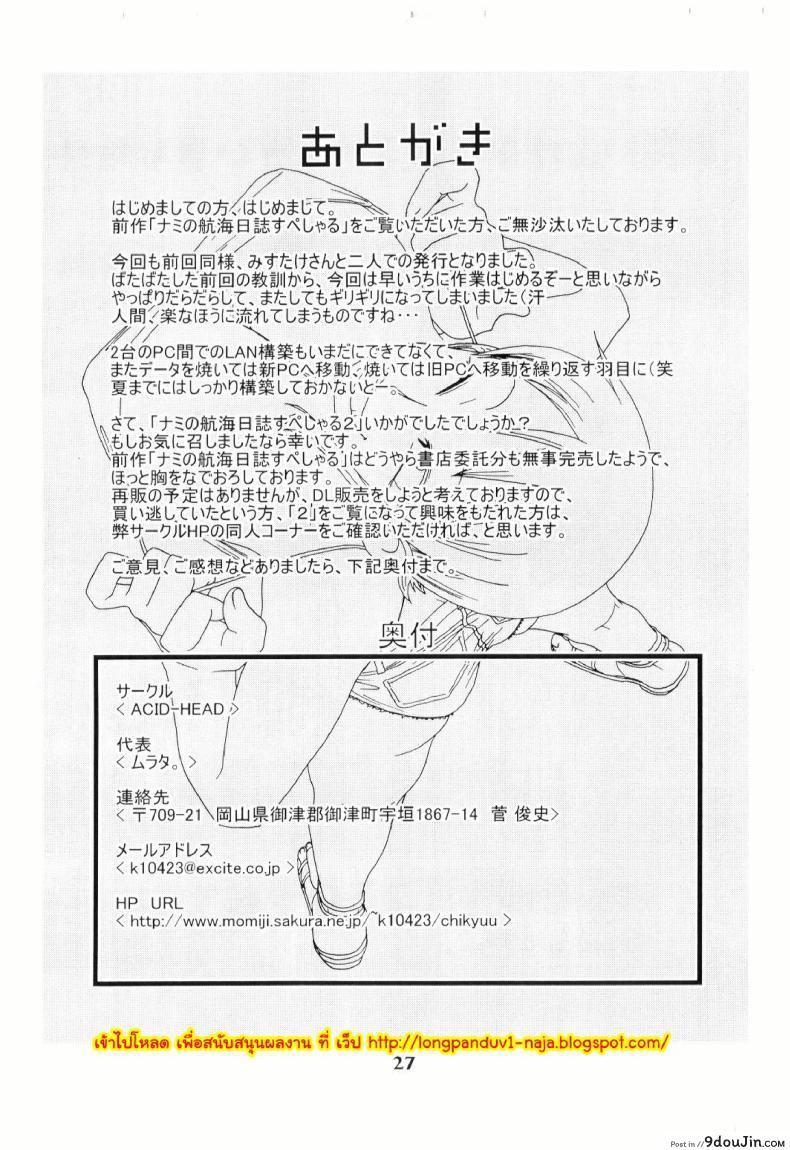 あとがき
はじめましての方、はじめまして。
前作「ナミの航海日誌すぺしゃる」をご覧いただいた方、ご無沙汰いたしております。
今回も前回同様、みすたけさんと二人での発行となりました。
ばたばたした前回の教訓から、今回は早いうちに作業はじめるぞーと思いながら
やっぱりだらだらして、またしてもギリギリになってしまいました（汗
人間、楽なほうに流れてしまうものですね・・・
2台のPC間でのLAN構築もいまだにできてなくて、
またデータを焼いては新PCへ移動、焼いては旧PCへ移動を繰り返す羽目に（笑
夏までにはしっかり構築しておかないとー。
さて、「ナミの航海日誌すぺしゃる２」いかがでしたでしょうか？
もしお気に召しましたなら幸いです。
前作「ナミの航海日誌すぺしゃる」はどうやら書店委託分も無事完売したようで、
ほっと胸をなでおろしております。
再販の予定はありませんが、DL販売をしようと考えておりますので、
買い逃していたという方、「２」をご覧になって興味をもたれた方は、
弊サークルHPの同人コーナーをご確認いただければ、と思います。
ご意見、ご感想などありましたら、下記奥付まで。
奥付
サークル
< ACID-HEAD >
代表
< ムラタ。 >
連絡先
< 〒709-21 岡山県御津郡御津町宇垣1867-14 菅 俊史>
メールアドレス
< k10423@excite.co.jp >
HP URL
< http://www.momiji.sakura.ne.jp/~k10423/chikyuu >
เข้าไปโหลด เพื่อสนับสนุนผลงาน ที่ เว็ป http://longpanduv1-naja.blogspot.com/
27
Post in // 9douJin.com